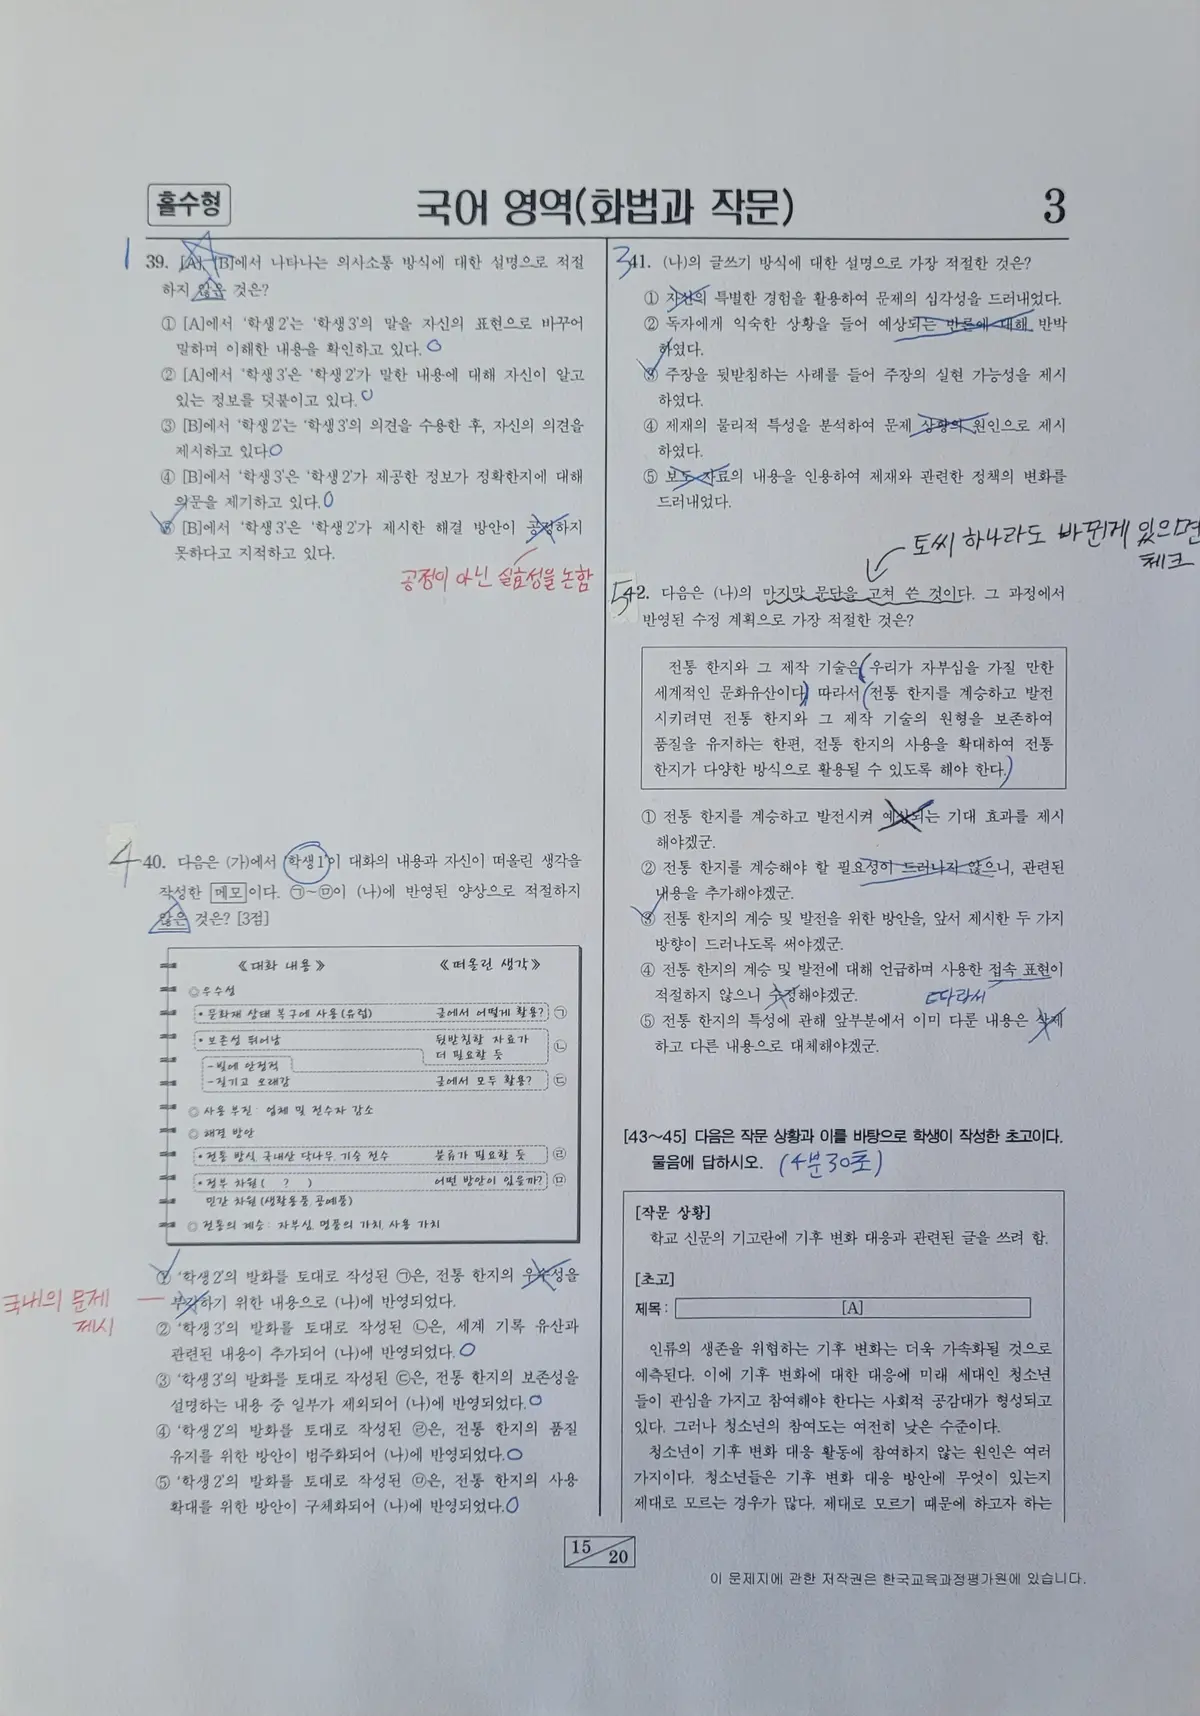 홀수형
국어 영역(화법과 작문)
3
1
39. [A], [B]에서 나타나는 의사소통 방식에 대한 설명으로 적절
하지 않은 것은?
① [A]에서 ‘학생2’는 ‘학생3’의 말을 자신의 표현으로 바꾸어
말하며 이해한 내용을 확인하고 있다.
② [A]에서 ‘학생3’은 ‘학생2’가 말한 내용에 대해 자신이 알고
있는 정보를 덧붙이고 있다.
③ [B]에서 ‘학생2’는 ‘학생3’의 의견을 수용한 후, 자신의 의견을
제시하고 있다.
④ [B]에서 ‘학생3’은 ‘학생2’가 제공한 정보가 정확한지에 대해
의문을 제기하고 있다.
⑤ [B]에서 ‘학생3’은 ‘학생2’가 제시한 해결 방안이 공정하지
못하다고 지적하고 있다.
공정이 아닌 실효성을 논함
4
40. 다음은 (가)에서 ‘학생1’이 대화의 내용과 자신이 떠올린 생각을
작성한 메모이다. ㉠~㉤이 (나)에 반영된 양상으로 적절하지
않은 것은? [3점]
《대화 내용》 《떠올린 생각》
◎ 우수성
• 문화재 상태 복구에 사용(유럽) 글에서 어떻게 활용? ㉠
• 보존성 뛰어남 뒷받침할 자료가
더 필요할 듯 ㉡
- 빛에 안정적
- 질기고 오래감 글에서 모두 활용? ㉢
◎ 사용 부진 : 업체 및 전수자 감소
◎ 해결 방안
• 전통 방식, 국내산 닥나무, 기술 전수 분류가 필요할 듯 ㉣
• 정부 차원( ? ) 어떤 방안이 있을까? ㉤
민간 차원(생활용품, 공예품)
◎ 전통의 계승 : 자부심, 명품의 가치, 사용 가치
① ‘학생2’의 발화를 토대로 작성된 ㉠은, 전통 한지의 우수성을
부각하기 위한 내용으로 (나)에 반영되었다.
국내의 문제
제시
② ‘학생3’의 발화를 토대로 작성된 ㉡은, 세계 기록 유산과
관련된 내용이 추가되어 (나)에 반영되었다.
③ ‘학생3’의 발화를 토대로 작성된 ㉢은, 전통 한지의 보존성을
설명하는 내용 중 일부가 제외되어 (나)에 반영되었다.
④ ‘학생2’의 발화를 토대로 작성된 ㉣은, 전통 한지의 품질
유지를 위한 방안이 범주화되어 (나)에 반영되었다.
⑤ ‘학생2’의 발화를 토대로 작성된 ㉤은, 전통 한지의 사용
확대를 위한 방안이 구체화되어 (나)에 반영되었다.
3
41. (나)의 글쓰기 방식에 대한 설명으로 가장 적절한 것은?
① 자신의 특별한 경험을 활용하여 문제의 심각성을 드러내었다.
② 독자에게 익숙한 상황을 들어 예상되는 반론에 대해 반박
하였다.
③ 주장을 뒷받침하는 사례를 들어 주장의 실현 가능성을 제시
하였다.
④ 제재의 물리적 특성을 분석하여 문제 상황의 원인으로 제시
하였다.
⑤ 보도 자료의 내용을 인용하여 제재와 관련한 정책의 변화를
드러내었다.
토씨 하나라도 바뀐게 있으면
체크
5
42. 다음은 (나)의 마지막 문단을 고쳐 쓴 것이다. 그 과정에서
반영된 수정 계획으로 가장 적절한 것은?
전통 한지와 그 제작 기술은 우리가 자부심을 가질 만한
세계적인 문화유산이다. 따라서 전통 한지를 계승하고 발전
시키려면 전통 한지와 그 제작 기술의 원형을 보존하여
품질을 유지하는 한편, 전통 한지의 사용을 확대하여 전통
한지가 다양한 방식으로 활용될 수 있도록 해야 한다.
① 전통 한지를 계승하고 발전시켜 예상되는 기대 효과를 제시
해야겠군.
② 전통 한지를 계승해야 할 필요성이 드러나지 않으니, 관련된
내용을 추가해야겠군.
③ 전통 한지의 계승 및 발전을 위한 방안을, 앞서 제시한 두 가지
방향이 드러나도록 써야겠군.
④ 전통 한지의 계승 및 발전에 대해 언급하며 사용한 접속 표현이
적절하지 않으니 수정해야겠군.
따라서
⑤ 전통 한지의 특성에 관해 앞부분에서 이미 다룬 내용은 삭제
하고 다른 내용으로 대체해야겠군.
[43～45] 다음은 작문 상황과 이를 바탕으로 학생이 작성한 초고이다.
물음에 답하시오. (4분30초)
[작문 상황]
학교 신문의 기고란에 기후 변화 대응과 관련된 글을 쓰려 함.
[초고]
제목 : [A]
인류의 생존을 위협하는 기후 변화는 더욱 가속화될 것으로
예측된다. 이에 기후 변화에 대한 대응에 미래 세대인 청소년
들이 관심을 가지고 참여해야 한다는 사회적 공감대가 형성되고
있다. 그러나 청소년의 참여도는 여전히 낮은 수준이다.
청소년이 기후 변화 대응 활동에 참여하지 않는 원인은 여러
가지이다. 청소년들은 기후 변화 대응 방안에 무엇이 있는지
제대로 모르는 경우가 많다. 제대로 모르기 때문에 하고자 하는
15
20
이 문제지에 관한 저작권은 한국교육과정평가원에 있습니다.